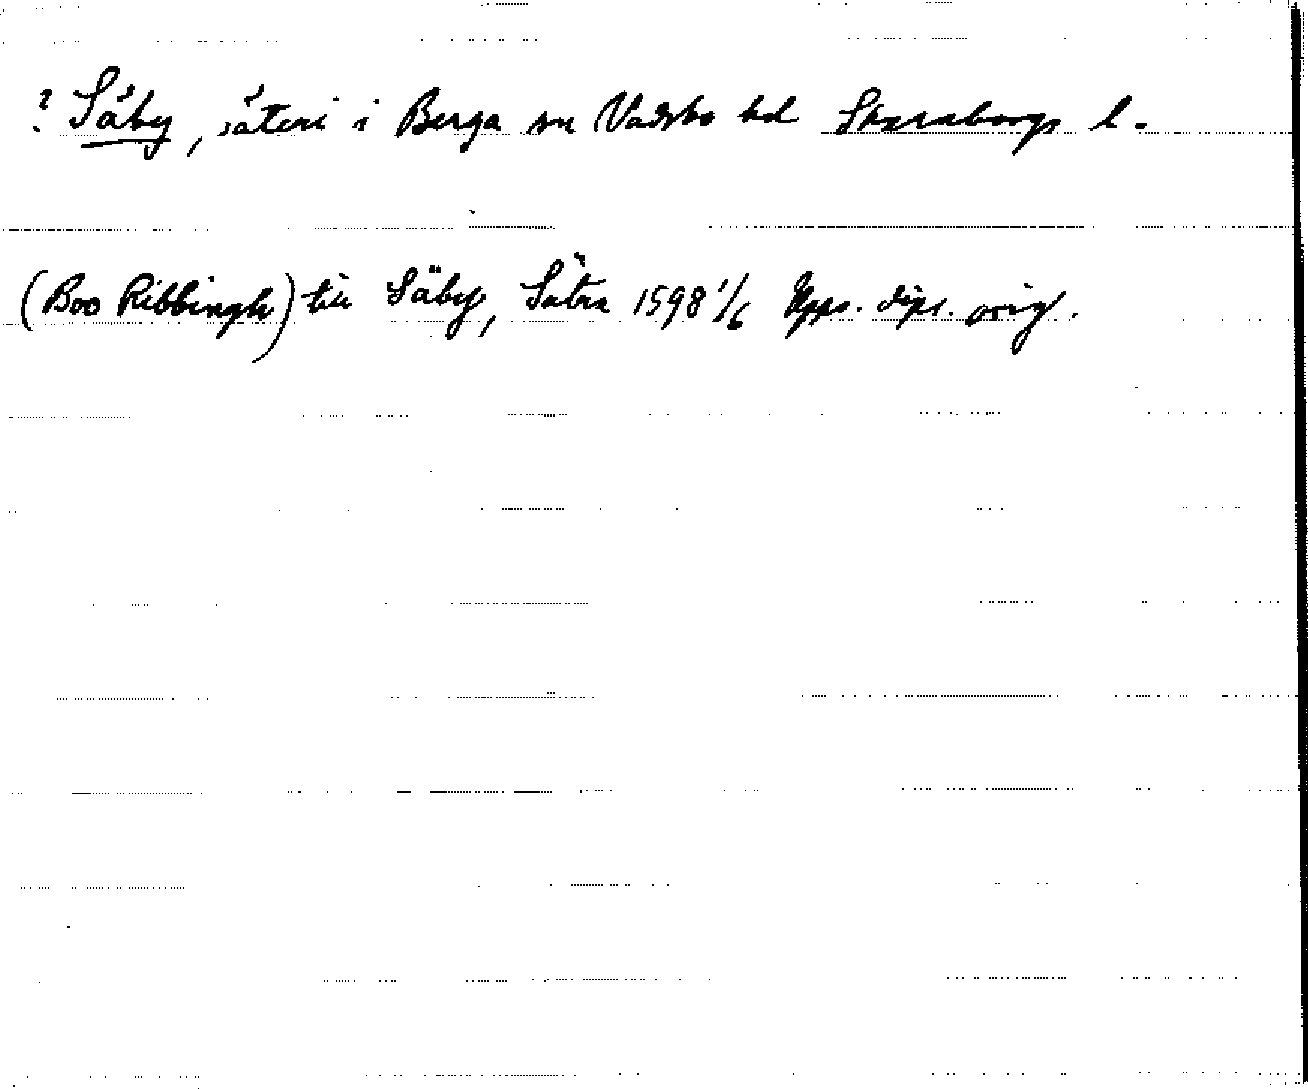 ? Säby, säteri i Berga sn Vadsbo hd Skaraborgs l.
(Boo Ribbingh) till Säby, Sätra 1598 1/6 Upps. dipl. orig.